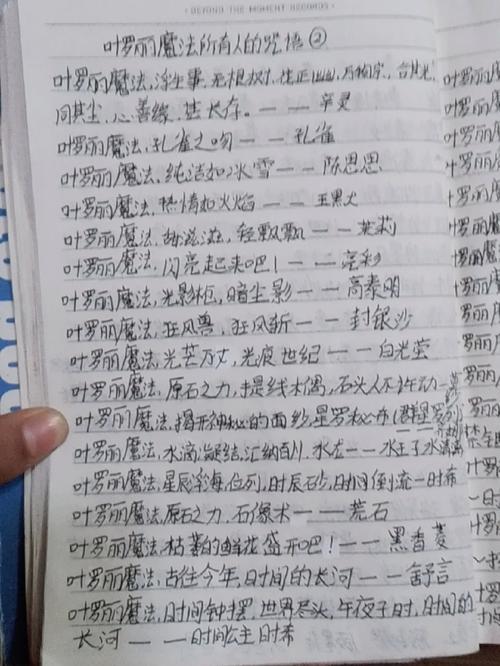 BEYOND THE MOMENT RECORDS
叶罗丽魔法所有人的咒语②
叶罗丽魔法,浮生事,无根树,性正,万物宗,合其光,
同其尘,心善缘,甚长存。——辛灵
叶罗丽魔法,孔雀之吻——孔雀
叶罗丽魔法,纯洁如冰雪——陈思思
叶罗丽魔法,热情如火焰——王黑犬
叶罗丽魔法,甜滋滋,轻飘飘——茉莉
叶罗丽魔法,闪亮起来吧!——亮彩
叶罗丽魔法,光影柜,暗尘影——高泰明
叶罗丽魔法,狂风兽,狂风斩——封银沙
叶罗丽魔法,光芒万丈,光痕世纪——白光莹
叶罗丽魔法,原石之力,提线木偶,石头人不许动—
叶罗丽魔法,揭开神秘的面纱,星罗秘布
叶罗丽魔法,水滴凝结,汇纳百川,水龙——水王子水清漓
叶罗丽魔法,星辰彩海,位列,时辰,时间倒流—时希
叶罗丽魔法,原石之力,石像术——荒石
叶罗丽魔法,枯萎的鲜花盛开吧!——黑香菱
叶罗丽魔法,古往今年,时间的长河——舒言
叶罗丽魔法,时间钟摆,世界尽头,午夜子时,时间的
长河——时间公主时希